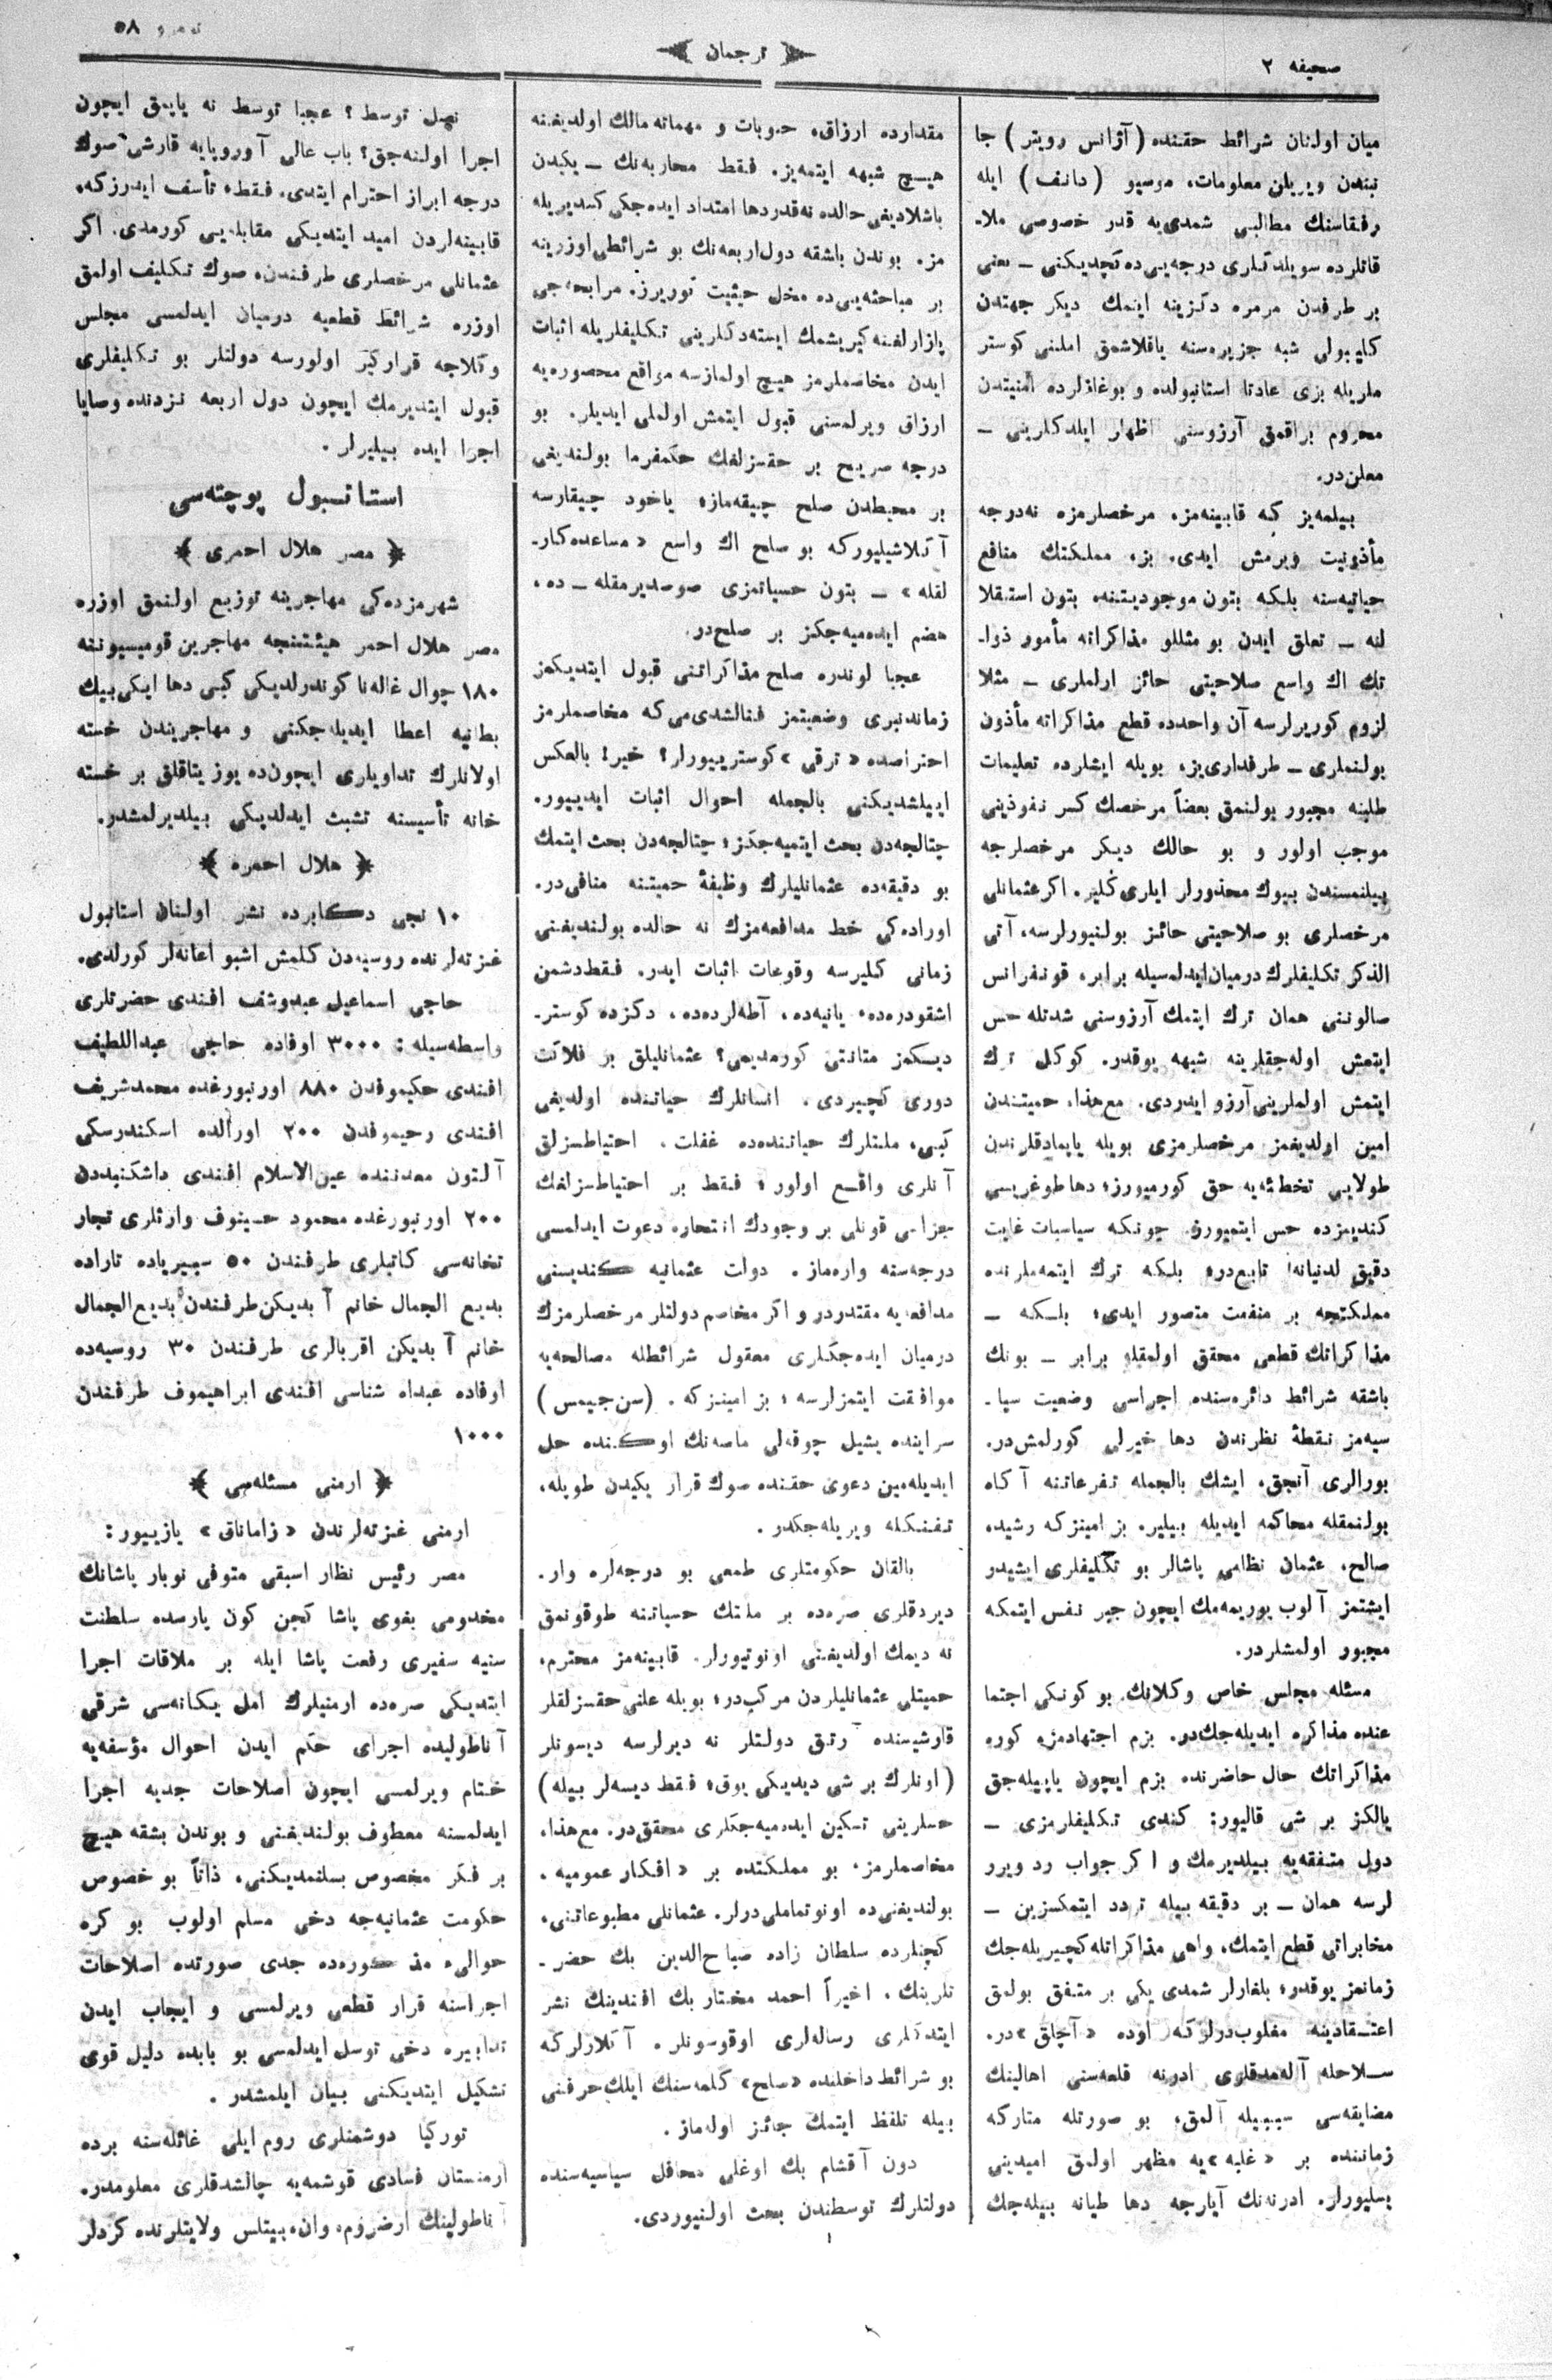 صحیفه ۲
ترجمان
نومرو ۵۸
میان اولنان شرائط حقنده (آژانس رویتر) جا
نبندن ویریلن معلومات، موسیو (دانف) ایله
رفقاسنك مطالبی شمدی‌یه قدر خصوصی ملا-
قاتلرده سویلدکلری درجه‌یی‌ده کچدیکنی — یعنی
بر طرفدن مرمره دکزینه اینمك دیکر جهتدن
کلیبولی شبه جزیره‌سنه یاقلاشمق املنی کوستر
ملریله بزی عادتا استانبولده و بوغازلرده امنیتدن
محروم براقمق آرزوسنی اظهار ایلدکلرینی —
معلن‌در.
بیلمه‌یز که قابینه‌مز، مرخصلرمزه نه‌درجه
مأذونیت ویرمش ایدی. بز، مملکتك منافع
حیاتیه‌سنه بلکه بتون موجودیتنه، بتون استقلا
لنه — تعلق ایدن بو مثللو مذاکراته مأمور ذوا-
تك اك واسع صلاحیتی حائز اولملری — مثلا
لزوم کوریرلرسه آن واحدده قطع مذاکراته مأذون
بولنملری — طرفداری‌یز، بویله ایشلرده تعلیمات
طلبنه مجبور بولنمق بعضاً مرخصك کسر نفوذینی
موجب اولور و بو حالك دیکر مرخصلرجه
بیلنمسندن بیوك محذورلر ایلری کلیر. اکر عثمانلی
مرخصلری بو صلاحیتی حائز بولنیورلرسه، آتی
الذکر تکلیفلرك درمیان ایدلمسیله برابر، قونفرانس
صالوننی همان ترك ایتمك آرزوسنی شدتله حس
ایتمش اوله‌جقلرینه شبهه یوقدر. کوکل ترك
ایتمش اولملرینی آرزو ایدردی. مع‌هذا، حمیتندن
امین اولدیغمز مرخصلرمزی بویله یاپمادقلرندن
طولایی تخطئه‌یه حق کورمیورز؛ دها طوغریسی
کندیمزده حس ایتمیورز. چونکه سیاسیات غایت
دقیق لدنیانه تابع‌در؛ بلکه ترك ایتمه‌ملرنده
مملکتجه بر منفعت متصور ایدی؛ بلکه —
مذاکراتك قطعی محقق اولمقله برابر — بونك
باشقه شرائط دائره‌سنده اجراسی وضعیت سیا-
سیه‌مز نقطهٔ نظرندن دها خیرلی کورلمش‌در.
بورالری آنجق، ایشك بالجمله تفرعاتنه آکاه
بولنمقله محاکمه ایدیله بیلیر. بز امینز که رشید،
صالح، عثمان نظامی پاشالر بو تکلیفلری ایشیدر
ایشتمز آلوب یوریمه‌مك ایچون جبر نفس ایتمکه
مجبور اولمشلردر.
مسئله مجلس خاص وکلانك بو کونکی اجتما
عنده مذاکره ایدیله‌جك‌در. بزم اجتهادمزه کوره
مذاکراتك حال حاضرنده بزم ایچون یاپیله‌جق
یالکز بر شی قالیور: کندی تکلیفلرمزی —
دول متفقه‌یه بیلدیرمك و اکر جواب رد ویرر
لرسه همان — بر دقیقه بیله تردد ایتمکسزین —
مخابراتی قطع ایتمك، واهی مذاکراتله کچیریله‌جك
زمانمز یوقدر؛ بلغارلر شمدی یکی بر متفق بولمق
اعتقادینه مغلوب‌درلر که اوده «آچلق»در.
سلاحله آله‌مدقلری ادرنه قلعه‌سنی اهالینك
مضایقه‌سی سببیله آلمق؛ بو صورتله متارکه
زماننده بر «غلبه»یه مظهر اولمق امیدینی
بسلیورلر. ادرنه‌نك آیلرجه دها طیانه بیله‌جك
مقدارده ارزاق، حبوبات و مهماته مالك اولدیغنه
هیچ شبهه ایتمه‌یز. فقط محاربه‌نك — یکیدن
باشلادیغی حالده نه‌قدر دها امتداد ایده‌جکی کسدیریله
مز. بوندن باشقه دول اربعه‌نك بو شرائطی اوزرینه
بر مباحثه‌یی‌ده مخل حیثیت کوریرز. مرابحه‌جی
پازارلغنه کیریشمك ایسته‌دکلرینی تکلیفلریله اثبات
ایدن مخاصملرمز هیچ اولمازسه مواقع محصوره‌یه
ارزاق ویرلمسنی قبول ایتمش اولملی ایدیلر. بو
درجه صریح بر حقسزلغك حکمفرما بولندیغی
بر محیطدن صلح چیقه‌ماز؛ یاخود چیقارسه
آکلاشیلیورکه بو صلح اك واسع «مساعده‌کار-
لقله» — بتون حسیاتمزی صوصدیرمقله — ده،
هضم ایده‌میه‌جکز بر صلح‌در.
عجبا لوندره صلح مذاکراتنی قبول ایتدیکمز
زماندنبری وضعیتمز فنالشدی‌می که مخاصملرمز
احتراصده «ترقی» کوستریبورلر؟ خیر! بالعکس
اییلشدیکنی بالجمله احوال اثبات ایدیبور.
چتالجه‌دن بحث ایتمیه‌جکز؛ چتالجه‌دن بحث ایتمك
بو دقیقه‌ده عثمانلیلرك وظیفهٔ حمیتنه منافی‌در.
اوراده‌کی خط مدافعه‌مزك نه حالده بولندیغنی
زمانی کلیرسه وقوعات اثبات ایدر. فقط دشمن
اشقودره‌ده، یانیه‌ده، آطه‌لرده‌ده، دکزده کوستر-
دیکمز متانتی کورمدیمی؟ عثمانلیلق بر فلاکت
دوری کچیردی. انسانلرك حیاتنده اولدیغی
کبی، ملتلرك حیاتنده‌ده غفلت، احتیاطسزلق
آنلری واقع اولور؛ فقط بر احتیاطسزلغك
جزاسی قوتلی بر وجودك انتحاره دعوت ایدلمسی
درجه‌سنه واره‌ماز. دولت عثمانیه کندیسنی
مدافعه‌یه مقتدردر و اکر مخاصم دولتلر مرخصلرمزك
درمیان ایده‌جکلری معقول شرائطله مصالحه‌یه
موافقت ایتمزلرسه؛ بز امینز که. (سن جیمس)
سراینده یشیل چوقه‌لی ماصه‌نك اوکنده حل
ایدیله‌مین دعوی حقنده صوك قرار یکیدن طوپله،
تفنکله ویریله‌جکدر.
بالقان حکومتلری طمعی بو درجه‌لره وار-
دیردقلری صره‌ده بر ملتك حسیاتنه طوقونمق
نه دیمك اولدیغنی اونوتیورلر. قابینه‌مز محترم،
حمیتلی عثمانلیلردن مرکب‌در؛ بویله علنی حقسزلقلر
قارشیسنده آرتق دولتلر نه دیرلرسه دیسونلر
(اونلرك بر شی دیدیکی یوق؛ فقط دیسه‌لر بیله)
حسلرینی تسکین ایده‌میه‌جکلری محقق‌در. مع‌هذا،
مخاصملرمز، بو مملکتده بر «افکار عمومیه»
بولندیغنی‌ده اونوتماملی‌درلر. عثمانلی مطبوعاتنی،
کچنلرده سلطان زاده صباح‌الدین بك حضر-
تلرینك، اخیراً احمد مختار بك افندینك نشر
ایتدکلری رساله‌لری اوقوسونلر. آکلارلرکه
بو شرائط داخلنده «صلح» کلمه‌سنك ایلك حرفنی
بیله تلفظ ایتمك جائز اوله‌ماز.
دون آقشام بك اوغلی محافل سیاسیه‌سنده
دولتلرك توسطندن بحث اولنیوردی.
نصل توسط؟ عجبا توسط نه یاپمق ایچون
اجرا اولنه‌جق؟ باب عالی آوروپایه قارشی صوك
درجه ابراز احترام ایتدی. فقط، تأسف ایدرزکه،
قابینه‌لردن امید ایتدیکی مقابله‌یی کورمدی. اکر
عثمانلی مرخصلری طرفندن، صوك تکلیف اولمق
اوزره شرائط قطعیه درمیان ایدلمسی مجلس
وکلاجه قرارکیر اولورسه دولتلر بو تکلیفلری
قبول ایتدیرمك ایچون دول اربعه نزدنده وصایا
اجرا ایده بیلیرلر.
استانبول پوچته‌سی
﴿ مصر هلال احمری ﴾
شهرمزده‌کی مهاجرینه توزیع اولنمق اوزره
مصر هلال احمر هیئتنجه مهاجرین قومیسیوننه
۱۸۰ چوال غاله‌تا کوندرلدیکی کبی دها ایکی بیك
بطانیه اعطا ایدیله‌جکنی و مهاجریندن خسته
اولانلرك تداویلری ایچون‌ده یوز یتاقلق بر خسته
خانه تأسیسنه تشبث ایدلدیکی بیلدیرلمشدر.
﴿ هلال احمره ﴾
۱۰ نجی دکابرده نشر اولنان استانبول
غزته‌لرنده روسیه‌دن کلمش اشبو اعانه‌لر کورلدی.
حاجی اسماعیل عبدوشف افندی حضرتلری
واسطه‌سیله: ۳۰۰۰ اوفاده حاجی عبداللطیف
افندی حکیموفدن ۸۸۰ اورنبورغده محمد شریف
افندی رحیموفدن ۲۰۰ اورالده اسکندرسکی
آلتون معدننده عین‌الاسلام افندی داشکنیدن
۲۰۰ اورنبورغده محمود حسینوف وارثلری تجار
تخانه‌سی کاتبلری طرفندن ۵۰ سیبریاده تاراده
بدیع الجمال خانم آبدیکن طرفندن بدیع‌الجمال
خانم آبدیکن اقربالری طرفندن ۳۰ روسیه‌ده
اوفاده عبدالله شناسی افندی ابراهیموف طرفندن
۱۰۰۰
﴿ ارمنی مسئله‌سی ﴾
ارمنی غزته‌لرندن «زاماناق» یازیبور:
مصر رئیس نظار اسبقی متوفی نوبار پاشانك
مخدومی بغوی پاشا کچن کون پارسده سلطنت
سنیه سفیری رفعت پاشا ایله بر ملاقات اجرا
ایتدیکی صره‌ده ارمنیلرك امل یکانه‌سی شرقی
آناطولیده اجرای حکم ایدن احوال مؤسفه‌یه
ختام ویرلمسی ایچون اصلاحات جدیه اجرا
ایدلمسنه معطوف بولندیغنی و بوندن بشقه هیچ
بر فکر مخصوص بسلنمدیکنی، ذاتاً بو خصوص
حکومت عثمانیه‌جه دخی مسلم اولوب بو کره
حوالیء مذکوره‌ده جدی صورتده اصلاحات
اجراسنه قرار قطعی ویرلمسی و ایجاب ایدن
تدابیره دخی توسل ایدلمسی بو بابده دلیل قوی
تشکیل ایتدیکنی بیان ایلمشدر.
تورکیا دوشمنلری روم ایلی غائله‌سنه برده
ارمنستان فسادی قوشمه‌یه چالشدقلری معلومدر.
آناطولینك ارضروم، وان، بیتلس ولایتلرنده کردلر